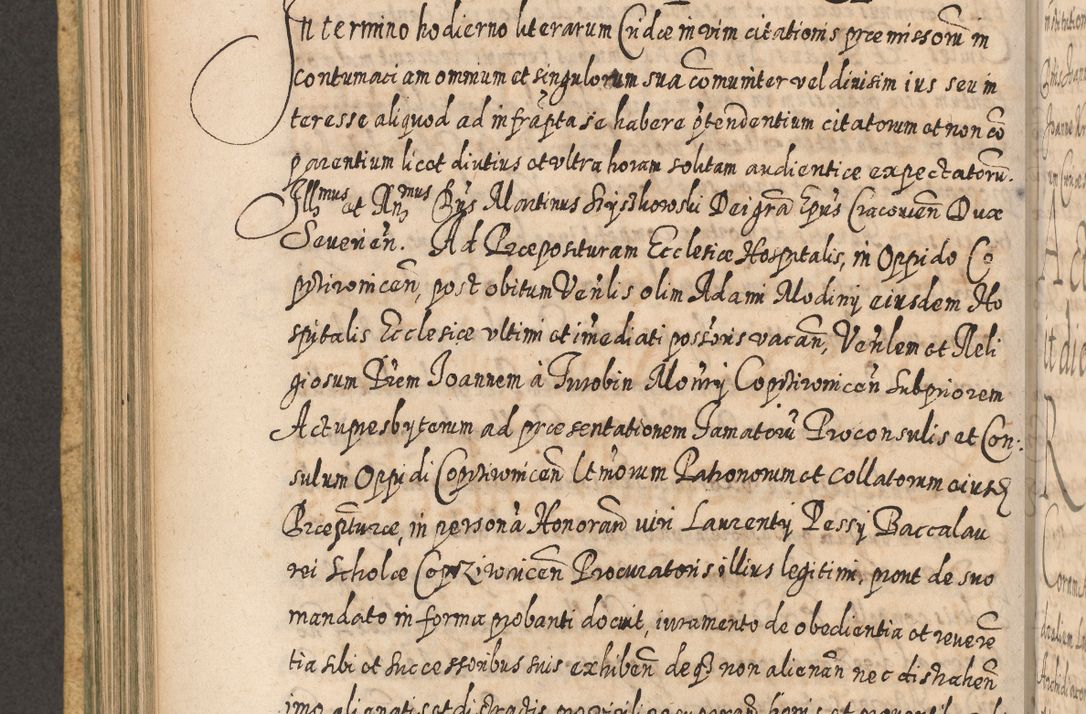 In termino hodierno literarum Cridæ in vim citationis præmissorũ in
contumaciam omnium et singulorum sua cõmuniter vel diuisim ius seu in
teresse aliquod ad infrãpta se habere p̃tendentium citatorum et non cõ
parentium licet diutius et vltra horam solitam audientiæ expectatorũ.
Illmus et Rndmus Dñs Martinus Szyszkowski Dei grã Epũs Cracouieñ Dux
Seuerieñ. Ad Præposituram Ecclesiæ Hospitalis, in Oppido Co
przivniceñ, post obitum Veñlis olim Adami Modinij eiusdem Ho
spitalis Ecclesiæ vltimi et im̃ediati possoris vacañ, Veñlem et Reli
giosum Frem Joannem à Turobin Mo͠nrÿ Coprzivniceñ Subpriorem
Actu presbyterum ad præsentationem Famatorũ Proconsulis et Con:
sulum Oppidi Coprzivniceñ ltmorum Patronorum et Collatorum eiusd
Præpturæ, in persona Honorañ viri Laurentij Pessÿ Baccalau
rei Scholæ Coprzivniceñ Procuratoris illius legitimi, prout de suo
mandato in forma probanti docuit, iuramento de obedientia et reuerẽ
tia sibi et successoribus suis exhibeñ deq non alienañ nec distraheñ
imo alienatis et distractis pro virili recuperañ bonis et prouentib